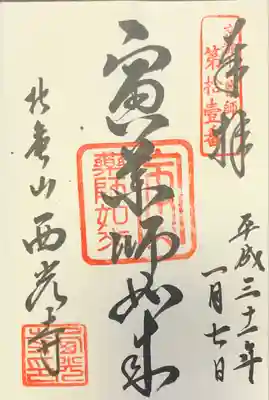 奉拝
第拾壹番
平成三十一年
一月七日
寅薬師如来
薬師如来
西光寺